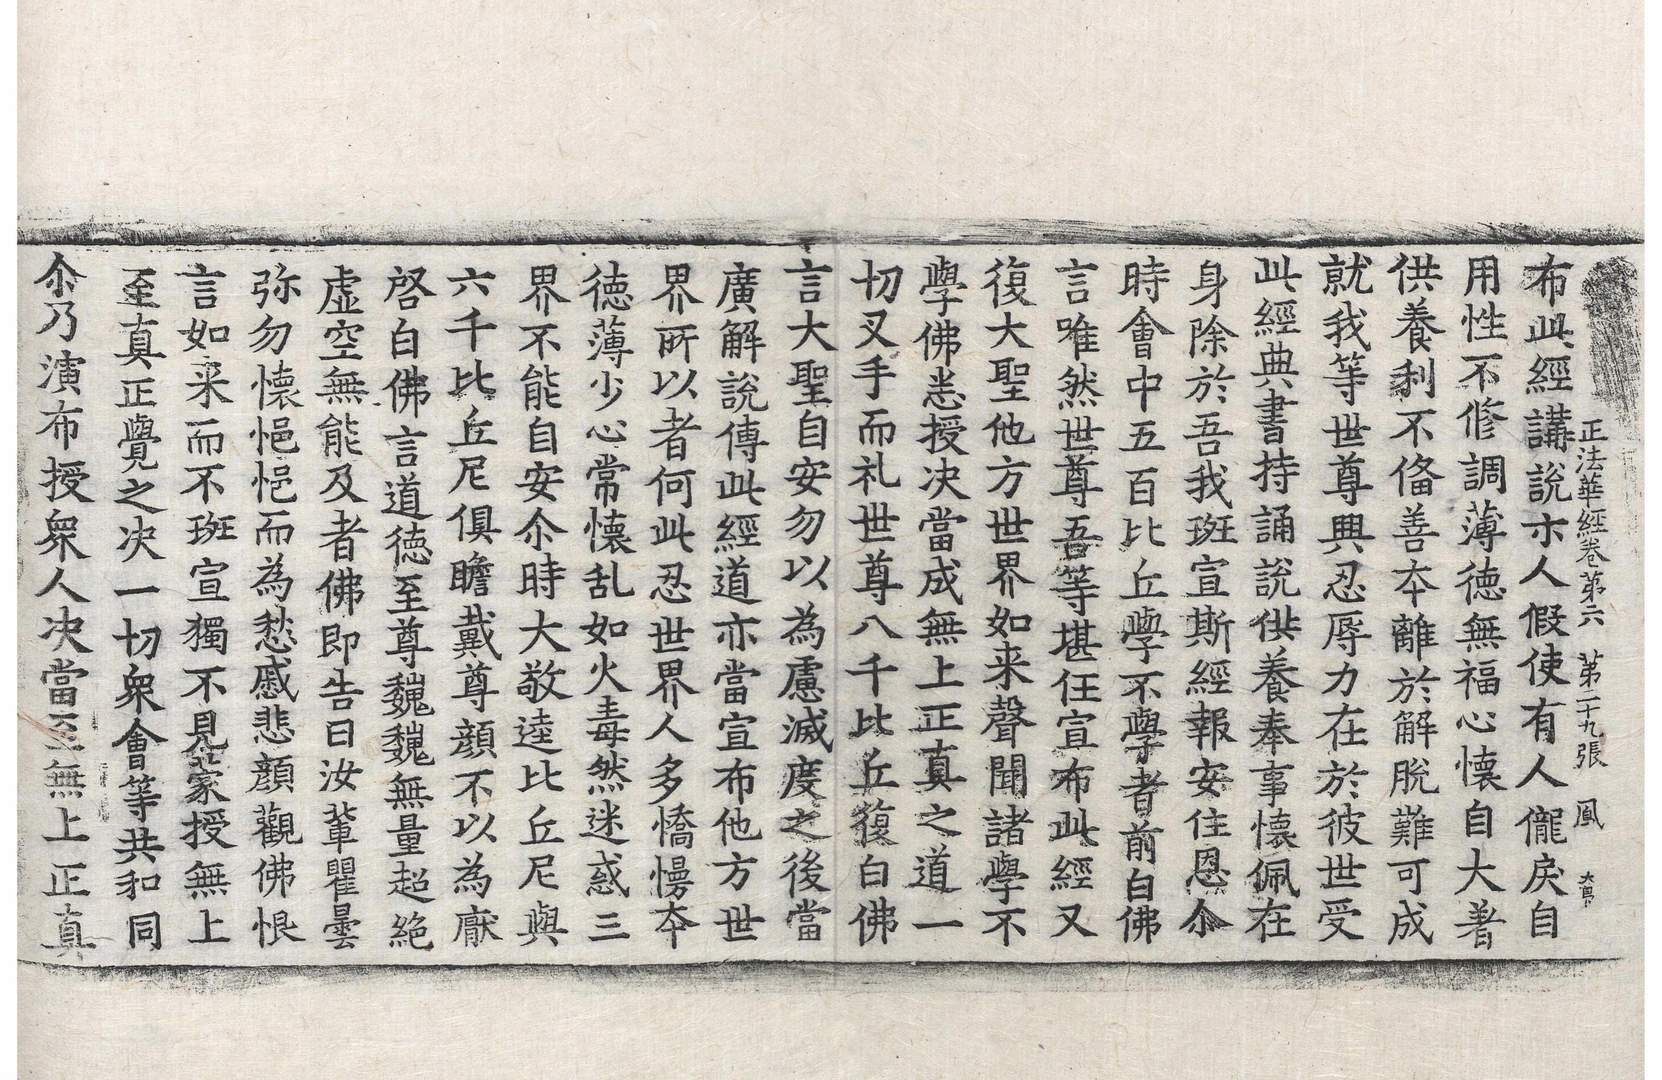 正法華經卷第六　第二十九張　鳳
布此經講說示人假使有人儱戾自
用性不修調薄德無福心懷自大著
供養利不俻善夲離於解脫難可成
就我等世尊興忍辱力在於彼世受
此經典書持誦說供養奉事懷佩在
身除於吾我班宣斯經報安住恩尒
時會中五百比丘學不學者前白佛
言唯然世尊吾等堪任宣布此經又
復大聖他方世界如来聲聞諸學不
學佛恙授决當成無上正真之道一
切叉手而礼世尊八千比丘復白佛
言大聖自安勿以為慮滅度之後當
廣解說傳此經道亦當宣布他方世
界所以者何此忍世界人多憍慢夲
德薄少心常懷乱如火毒然迷惑三
界不能自安尒時大敬逵比丘尼與
六千比丘尼俱瞻戴尊顏不以為厭
啓白佛言道德至尊巍巍無量超絶
虛空無能及者佛即告曰汝輩瞿曇
弥勿懷悒悒而為愁慼悲顏觀佛恨
言如来而不班宣獨不見蒙授無上
至真正覺之决一切衆會等共和同
尒乃演布授衆人决當至無上正真